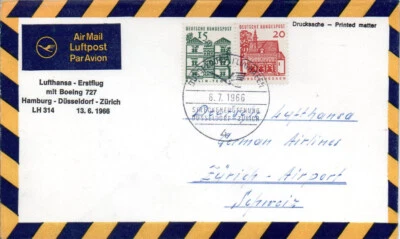 Air Mail
Luftpost
Par Avion
Lufthansa - Erstflug
mit Boeing 727
Hamburg - Düsseldorf - Zürich
LH 314 13. 6. 1966
DEUTSCHE BUNDESPOST
15
DEUTSCHE BUNDESPOST
20
Drucksache - Printed matter
1966
STRECKENERÖFFNUNG
DÜSSELDORF-ZÜRICH
Lufthansa
German Airlines
Zürich-Airport
Schweiz